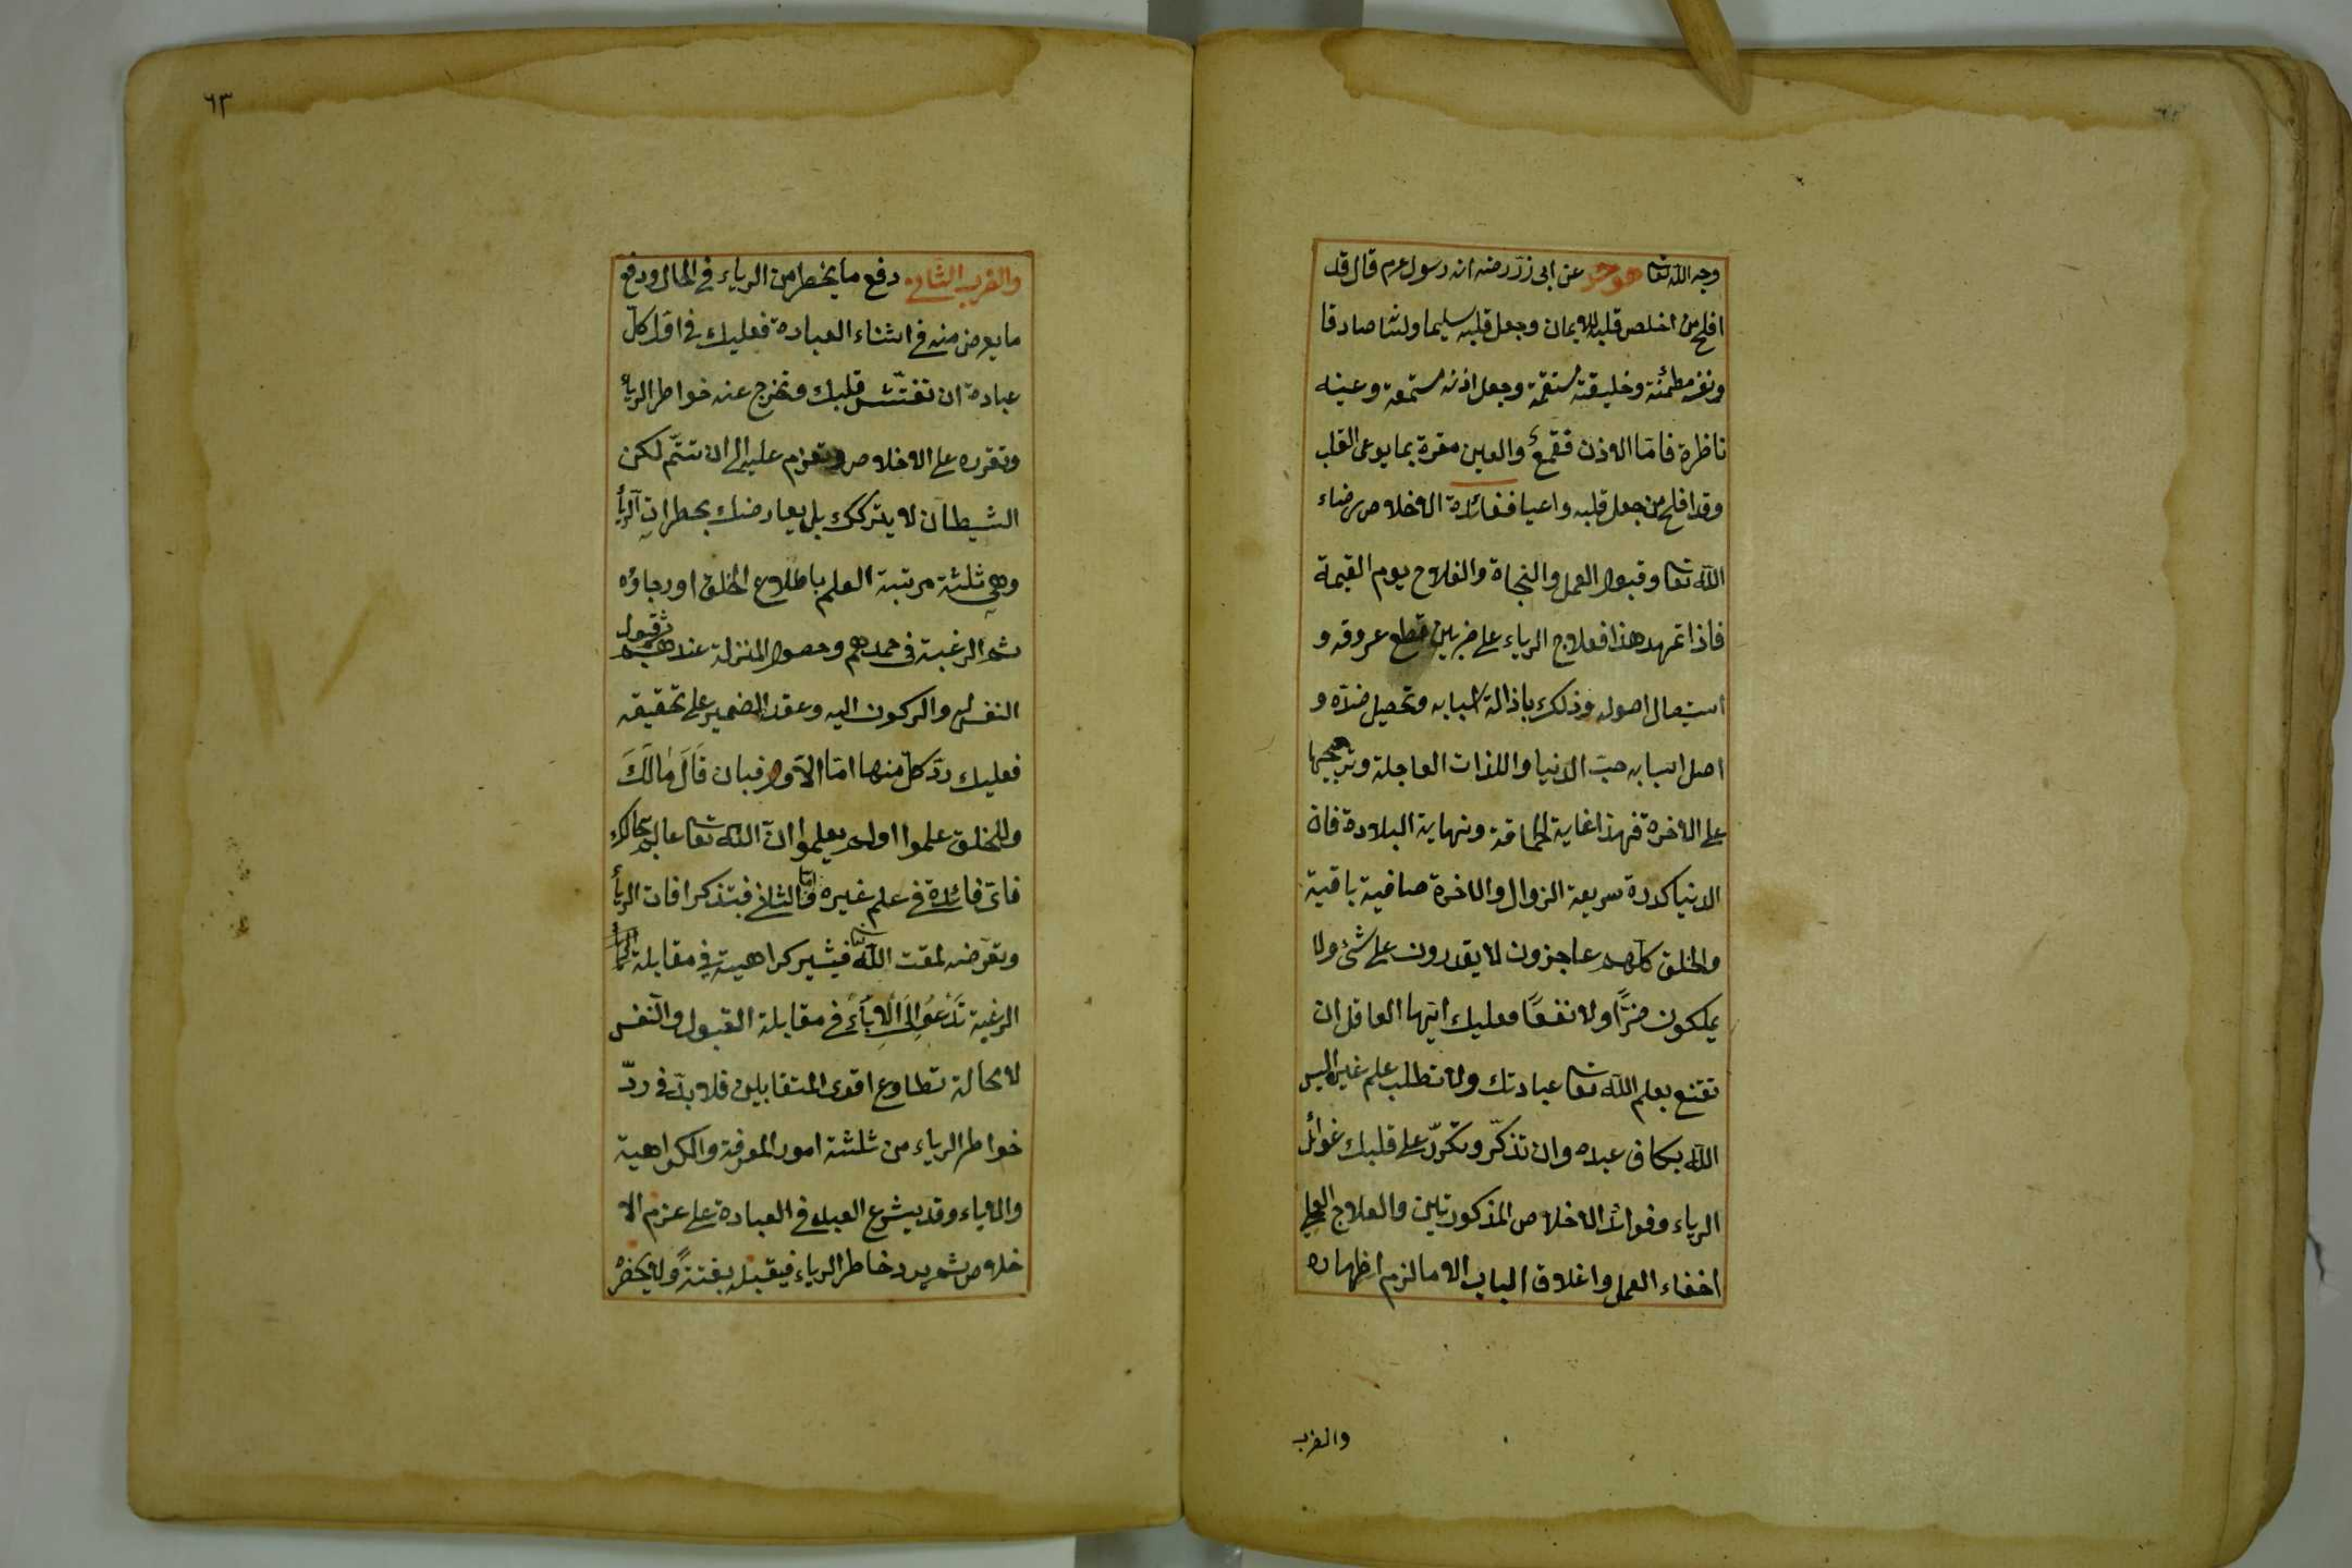 وجه الله تعا هو حد عن ابى ذر رضه ان رسول عم قال قد
افلح من اخلص قلبه للايمان وجعل قلبه سليما ولسنا صادقا
ونفسه مطمئنة وخليقته مستقيمة وجعل اذنه مستمعة وعينه
ناظرة فاما الاذن فقمع والعين مقرة بما يوعى القلب
وقد افلح من جعل قلبه واعيا ففائدة الاخلاص رضاء
الله تعا وقبول العمل والنجاة والفلاح يوم القيمة
فاذا تمهد هذا فعلاج الرياء على ضربين قطع عروقه و
استيصال اصوله وذلك باذالة اسبابه وتحصيل ضده و
اصل اسبابه حب الدنيا واللذات العاجلة وترجيحها
على الاخرة فهذا غاية الحماقة ونهاية البلادة فان
الدنيا كدرة سريعة الزوال والاخرة صافية باقية
والخلق كلهم عاجزون لا يقدرون على شئ ولا
يملكون ضرّاً ولا نفعاً فعليك ايها العاقل ان
تقنع بعلم الله تعا عبادتك ولا تطلب علم غيره اليس
الله بكاف عبده وان تذكّر وتكرّر على قلبك غوائل
الرياء وفوائد الاخلاص المذكورتين والعلاج العملى
اخفاء العمل واغلاق الباب الا ما لزم اظهاره
والضرب
٦٣
والضرب الثانى دفع ما يخطر من الرياء فى الحال ودفع
ما يعرض منه فى اثناء العبادة فعليك فى اول كل
عبادة ان تفتّش قلبك وتخرج عنه خواطر الرياء
وتقرره على الاخلاص وتعزم عليه الى ان تتمّ لكن
الشيطان لا يتركك بل يعارضك بخطرات الرياء
وهى ثلثة مرتبة العلم باطلاع الخلق او رجاؤه
ثم الرغبة فى حمدهم وحصول المنزلة عندهم ثم قبول
النفس له والركون اليه وعقد الضمير على تحقيقه
فعليك ردّ كل منها اما الاول فبان قال مالك
وللخلق علموا او لم يعلموا ان الله تعا عالم بحالك
فاى فائدة فى علم غيره واما الثانى فبتذكر افات الرياء
وتعرضه لمقت الله تعا فيثير كراهية فى مقابلة تلك
الرغبة تدعو الى الاباء فى مقابلة القبول والنفس
لا محالة تطاوع اقوى المتقابلين فلا بد فى ردّ
خواطر الرياء من ثلثة امور المعرفة والكراهية
والاباء وقد يشرع العبد فى العبادة على عزم الا
خلاص ثم يرد خاطر الرياء فيقبله بغتة ولا يحضره